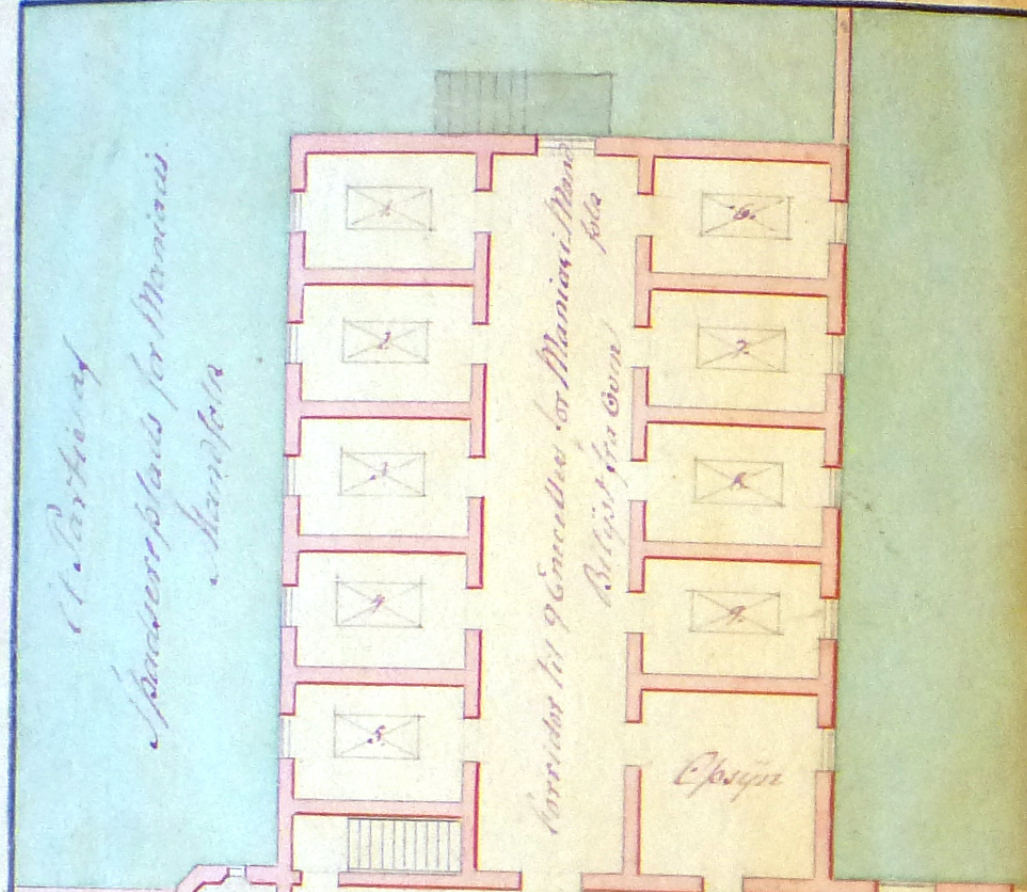 Et Partie af
Spadsereplads for Maniacis
Mandfolk
Korridor til 9 Eneceller for Maniaci Mand
folk
Belyst fra Oven
1.
2.
3.
4.
5.
6.
7.
8.
9.
Opsÿn